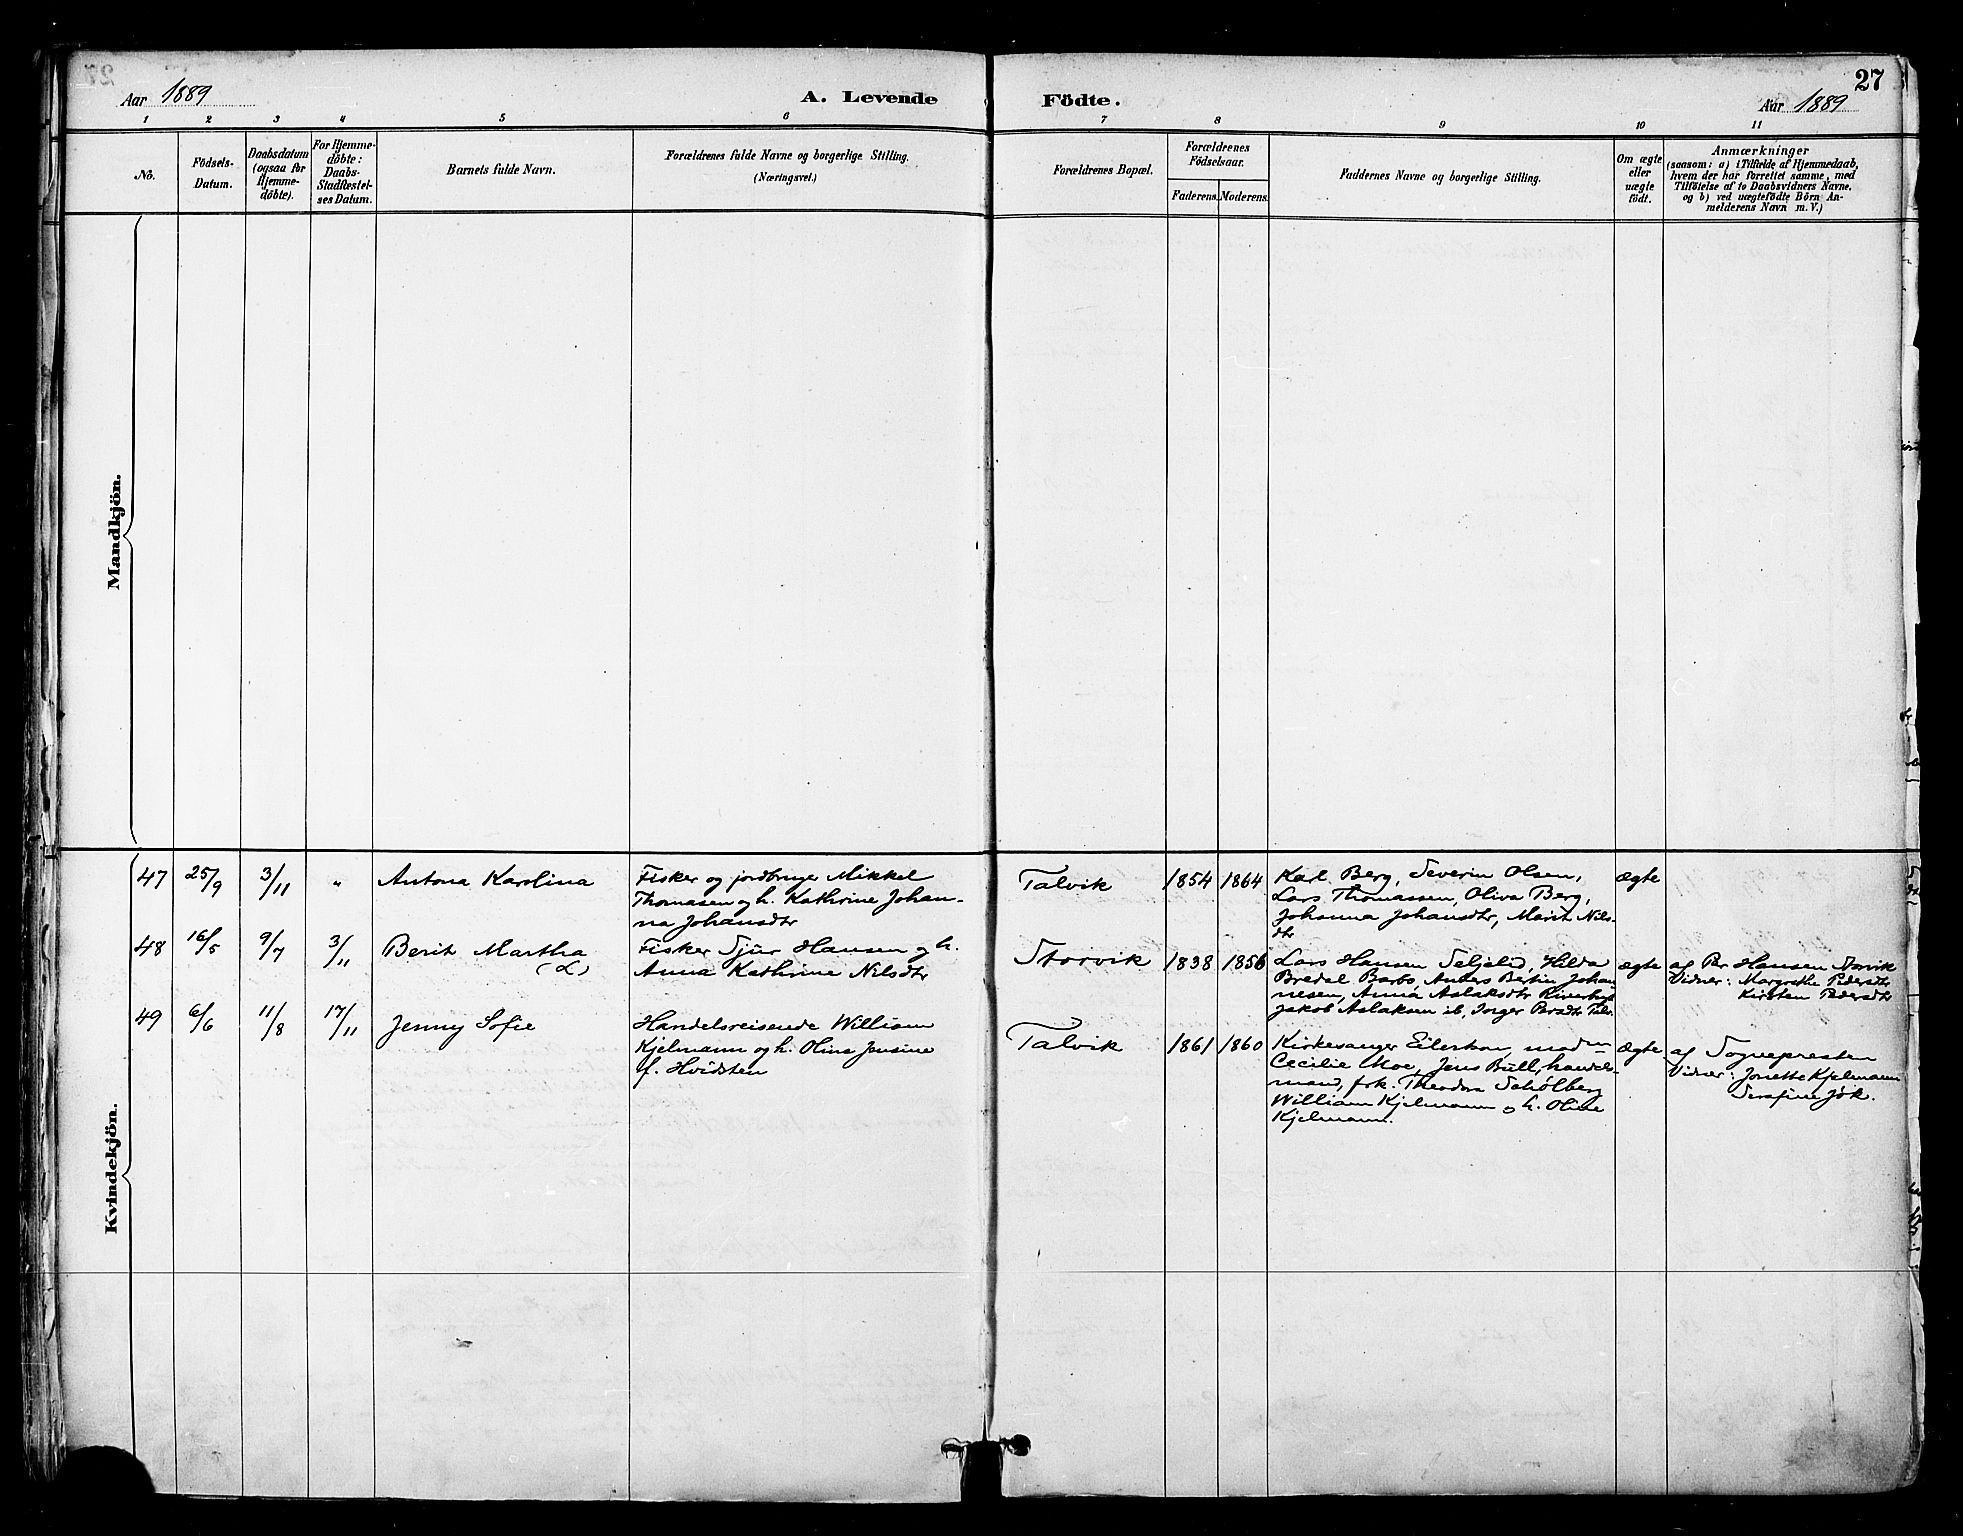 27
Aar 1889
A. Levende Födte.
Aar 1889
1 2 3 4 5 6 7 8 9 10 11
No.
Födsels-
Datum.
Daabsdatum
(ogsaa for
Hjemme-
döbte).
For Hjemme-
döbte:
Daabs-
Stadfæstel-
ses Datum.
Barnets fulde Navn.
Forældrenes fulde Navne og borgerlige Stilling.
(Næringsvei.)
Forældrenes Bopæl.
Forældrenes
Födselsaar.
Faderens. Moderens.
Faddernes Navne og borgerlige Stilling.
Om ægte
eller
uægte
födt.
Anmærkninger
(saasom: a) i Tilfælde af Hjemmedaab,
hvem der har forrettet samme, med
Tilföielse af to Daabsvidners Navne,
og b) ved uægtefödte Börn An-
melderens Navn m. V.)
Mandkjön.
Kvindekjön.
47 25/9 3/11 " Antona Karolina
Fisker og jordbruger Mikkel
Thomasen og h. Kathrine Johan-
na Johansdtr
Talvik 1854 1864
Karl Berg, Severin Olsen,
Lars Thomassen, Oliva Berg,
Johanna Johansdtr, Marit Nils-
dtr
ægte
48 16/5 9/7 3/11 Berit Martha
(L)
Fisker Sjur Hansen og h.
Anna Kathrine Nilsdtr
Storvik 1838 1856
Lars Hansen Seljelid, Hilda
Bredal Barbo, Anders Bertin Johan-
nesen, Anna Aslaksdtr
Jakob Aslaksen ib, Inger Persdtr Talv.
ægte
af Per Hansen Storvik
Vidner: Margrethe Pedersdtr
Kirsten Pedersdtr
49 6/6 11/8 17/11 Jenny Sofie
Handelsreisende William
Kjelmann og h. Oline Jensine
f. Hvidsten
Talvik 1861 1860
Kirkesanger
Cecilie Moe, Jens Bull, handels-
mand, frk. Theodora Schölberg
William Kjelmann og h. Oline
Kjelmann.
ægte
af Sognepresten
Vidner: Jonette Kjelmann
Serafine Jök.